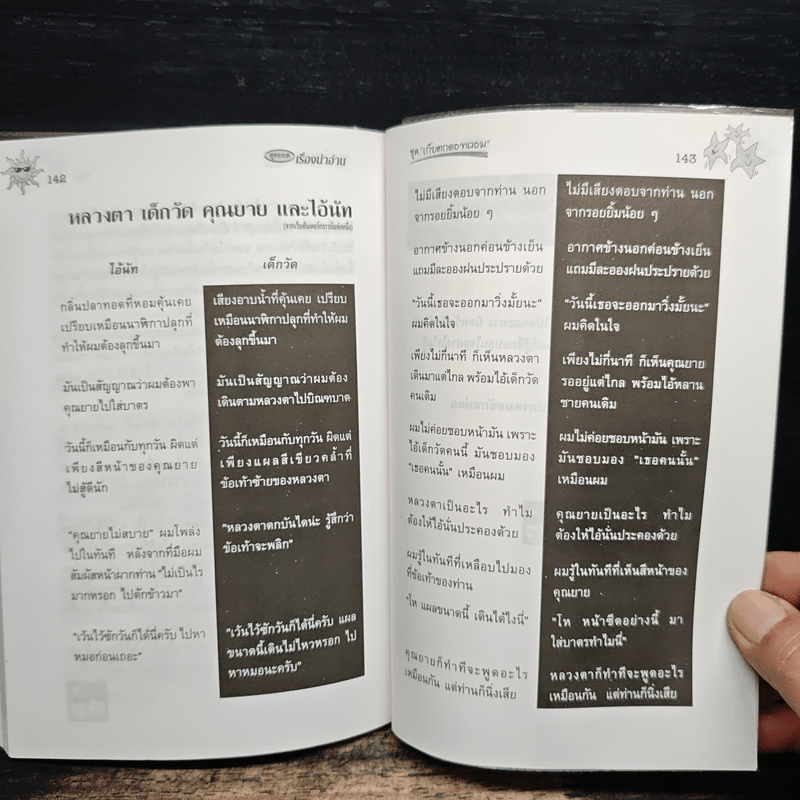 142
ชุดยอด เรื่องน่าอ่าน
หลวงตา เด็กวัด คุณยาย และไอ้นัท
ไอ้นัท
กลิ่นปลาทอดที่หอมคุ้นเคย
เปรียบเหมือนนาฬิกาปลุกที่
ทำให้ผมต้องลุกขึ้นมา
มันเป็นสัญญาณว่าผมต้องพา
คุณยายไปใส่บาตร
วันนี้ก็เหมือนกับทุกวัน ผิดแต่
เพียงสีหน้าของคุณยาย
ไม่สู้ดีนัก
"คุณยายไม่สบาย" ผมโพล่ง
ไปในทันที หลังจากที่มือผม
สัมผัสหน้าผากท่าน "ไม่เป็นไร
มากหรอก ไปตักข้าวมา"
"เว้นไว้ซักวันก็ได้นี่ครับ ไปหา
หมอก่อนเถอะ"
เด็กวัด
เสียงอาบน้ำที่คุ้นเคย เปรียบ
เหมือนนาฬิกาปลุกที่ทำให้ผม
ต้องลุกขึ้นมา
มันเป็นสัญญาณว่าผมต้อง
เดินตามหลวงตาไปบิณฑบาต
วันนี้ก็เหมือนกับทุกวัน ผิดแต่
เพียงแผลสีเขียวคล้ำที่
ข้อเท้าซ้ายของหลวงตา
"หลวงตาตกบันไดน่ะ รู้สึกว่า
ข้อเท้าจะพลิก"
"เว้นไว้ซักวันก็ได้นี่ครับ แผล
ขนาดนี้เดินไม่ไหวหรอก ไป
หาหมอนะครับ"
ชุด "เกือบตกดอทคอม"
143
ไม่มีเสียงตอบจากท่าน นอก
จากรอยยิ้มน้อย ๆ
อากาศข้างนอกค่อนข้างเย็น
แถมมีละอองฝนประปรายด้วย
"วันนี้เธอจะออกมาวิ่งมั้ยนะ"
ผมคิดในใจ
เพียงไม่กี่นาที ก็เห็นหลวงตา
เดินมาแต่ไกล พร้อมไอ้เด็กวัด
คนเดิม
ผมไม่ค่อยชอบหน้ามัน เพราะ
ไอ้เด็กวัดคนนี้ มันชอบมอง
"เธอคนนั้น" เหมือนผม
หลวงตาเป็นอะไร ทำไม
ต้องให้ไอ้นั่นประคองด้วย
ผมรู้ในทันทีที่เหลือบไปมอง
ที่ข้อเท้าของท่าน
"โห แผลขนาดนี้ เดินได้ไงนี่"
คุณยายก็ทำทีจะพูดอะไร
เหมือนกัน แต่ท่านก็นิ่งเสีย
ไม่มีเสียงตอบจากท่าน นอก
จากรอยยิ้มน้อย ๆ
อากาศข้างนอกค่อนข้างเย็น
แถมมีละอองฝนประปรายด้วย
"วันนี้เธอจะออกมาวิ่งมั้ยนะ"
ผมคิดในใจ
เพียงไม่กี่นาที ก็เห็นคุณยาย
รออยู่แต่ไกล พร้อมไอ้หลาน
ชายคนเดิม
ผมไม่ค่อยชอบหน้ามัน เพราะ
มันชอบมอง "เธอคนนั้น"
เหมือนผม
คุณยายเป็นอะไร ทำไม
ต้องให้ไอ้นั่นประคองด้วย
ผมรู้ในทันทีที่เห็นสีหน้าของ
คุณยาย
"โห หน้าซีดอย่างนี้ มา
ใส่บาตรทำไมนี่"
หลวงตาก็ทำทีจะพูดอะไร
เหมือนกัน แต่ท่านก็นิ่งเสีย